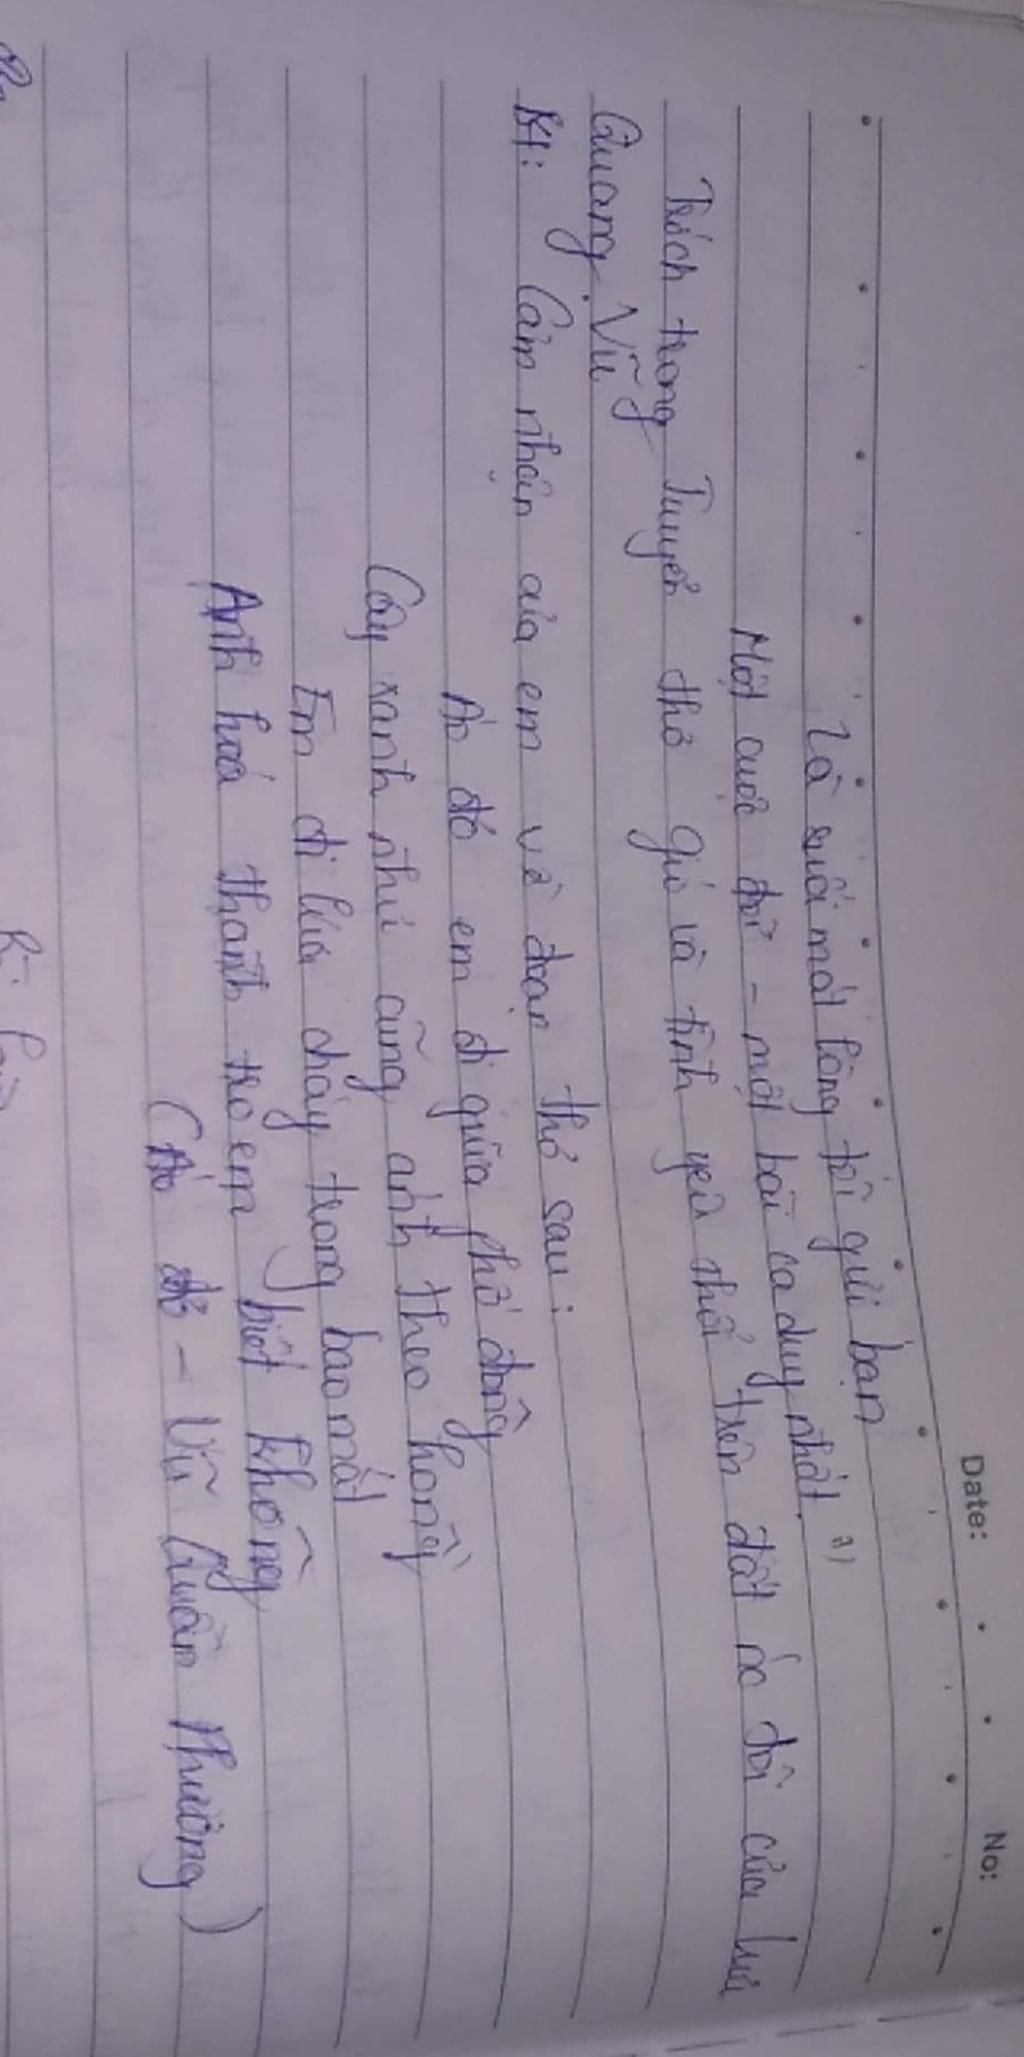 Date: No:
Là suối mát lòng tôi gửi bạn
Một cuộc đời - một bài ca duy nhất.
Trích trong Tuyển thơ gió và tình yêu thổi trên đất nc tôi của Lưu
Quang Vũ
B4: Cảm nhận của em về đoạn thơ sau:
Áo đỏ em đi giữa phố đông
Cây xanh như cũng ánh theo hồng
Em đi lửa cháy trong bao mắt
Anh hoá thành tro em biết không
(Áo đỏ - Vũ Quần Phương)